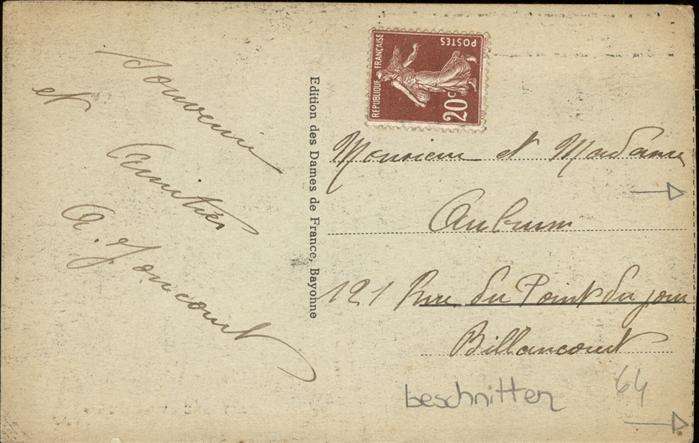 Souvenir
et Amitiés
A. Joncourt
Edition des Dames de France, Bayonne
REPUBLIQUE FRANÇAISE
POSTES
20c
Monsieur et Madame
121 Rue du Point du jour
Billancourt
beschnitten
64